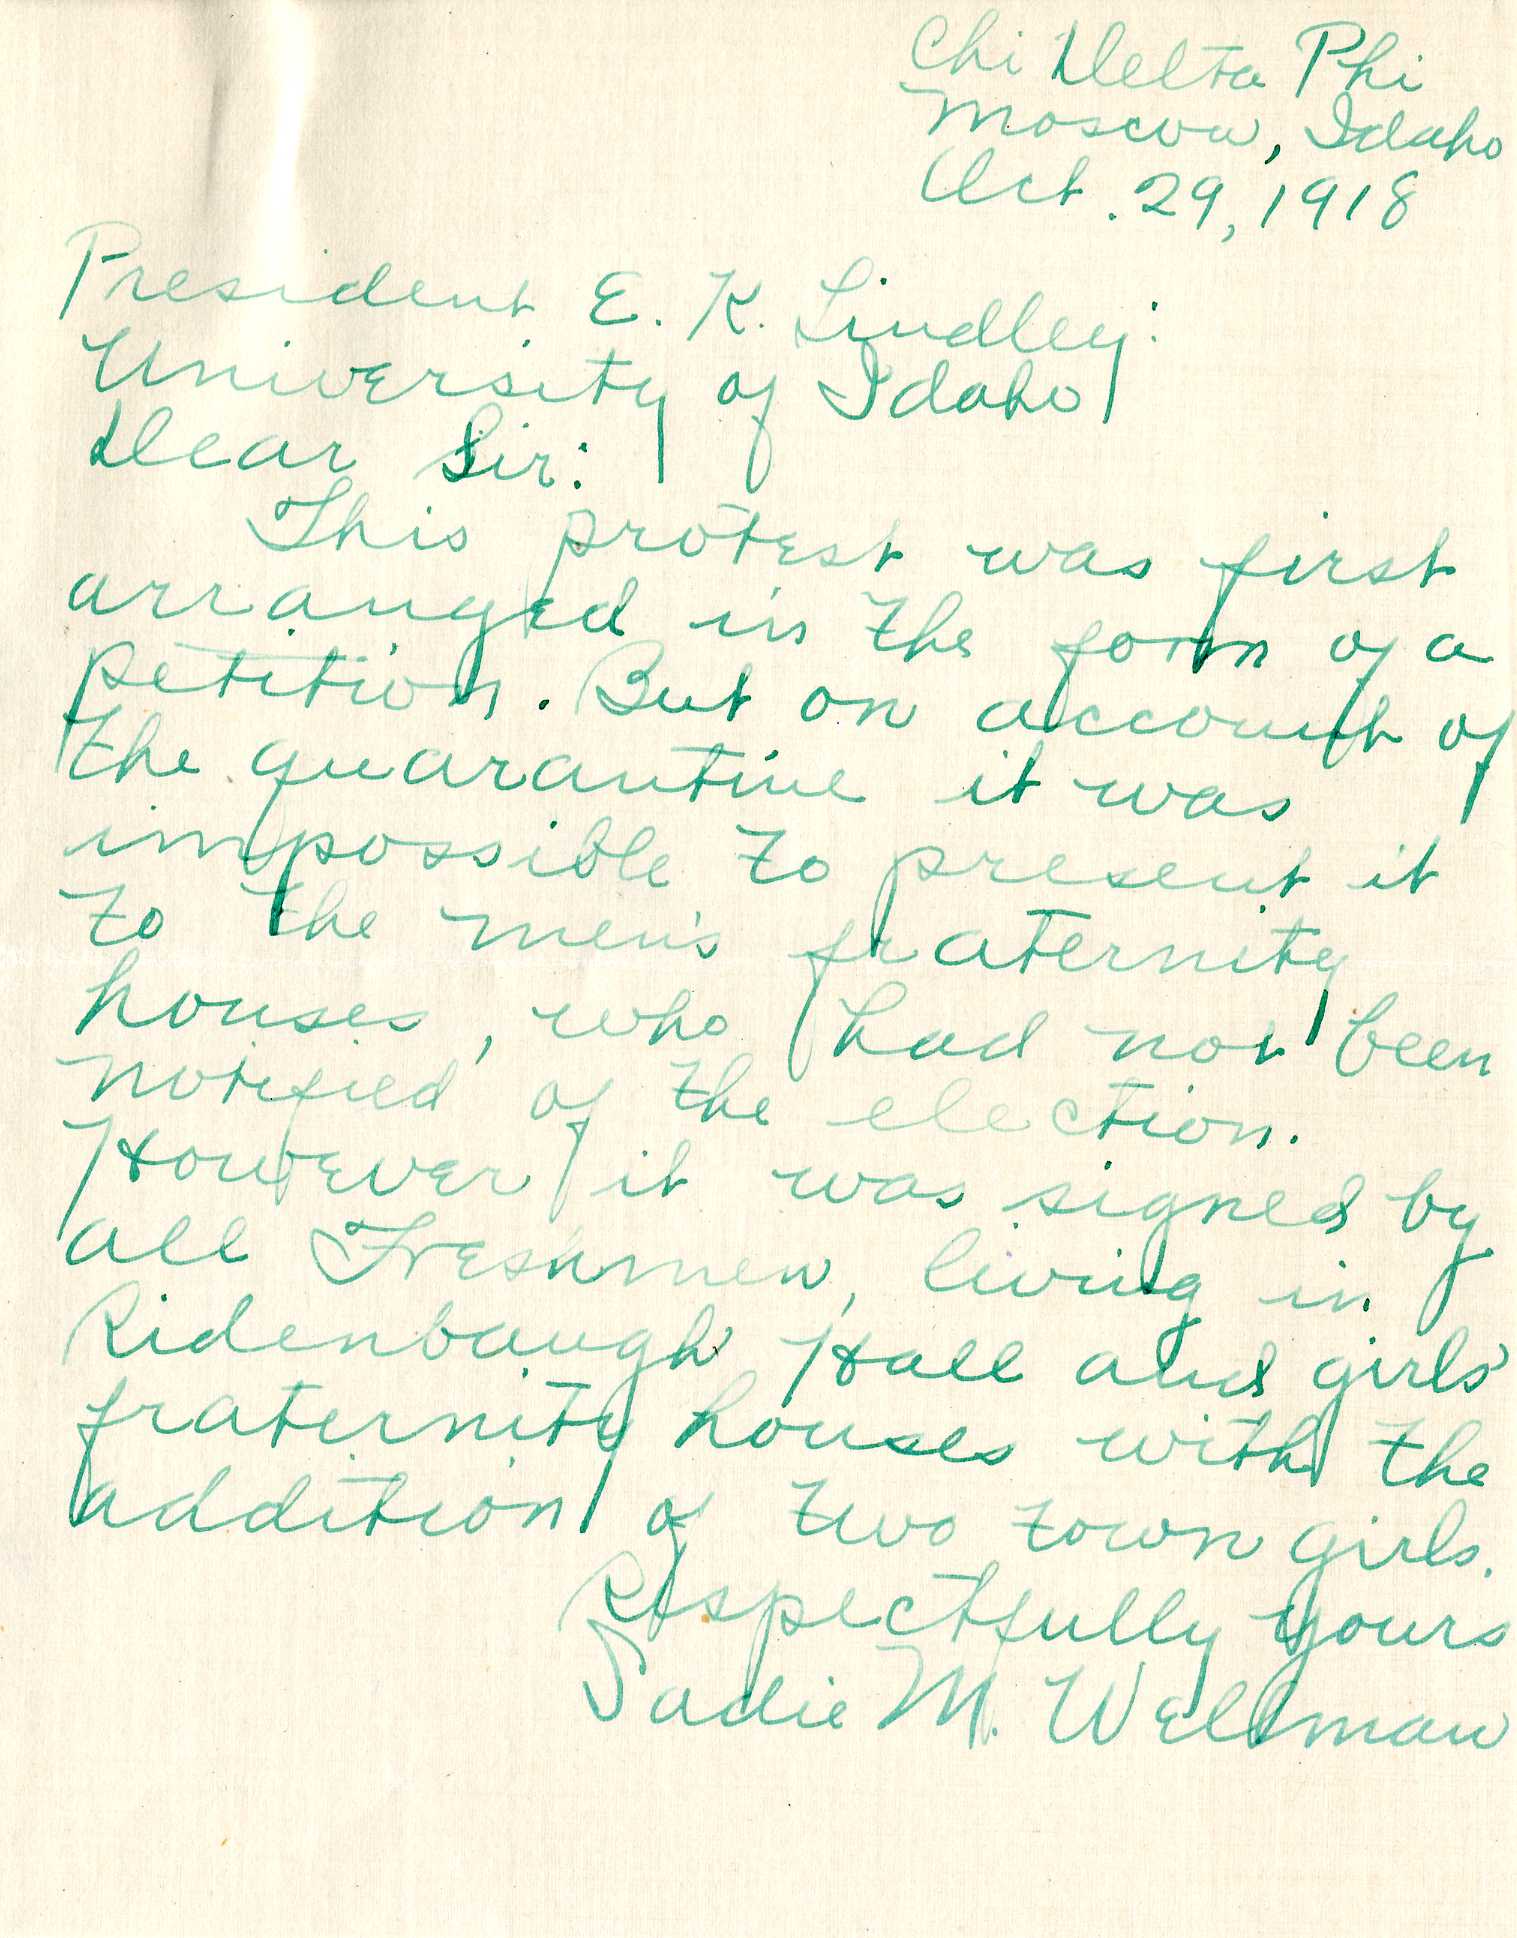 Chi Delta Phi
Moscow, Idaho
Oct. 29, 1918
President E. K. Lindley:
University of Idaho
Dear Sir:
This protest was first
arranged in the form of a
petition. But on account of
the quarantine it was
impossible to present it
to the men's fraternity
houses, who had not been
notified of the election.
However it was signed by
all Freshmen, living in
Ridenbaugh Hall and girls'
fraternity houses with the
addition of two town girls.
Respectfully yours
Sadie M. Wellman